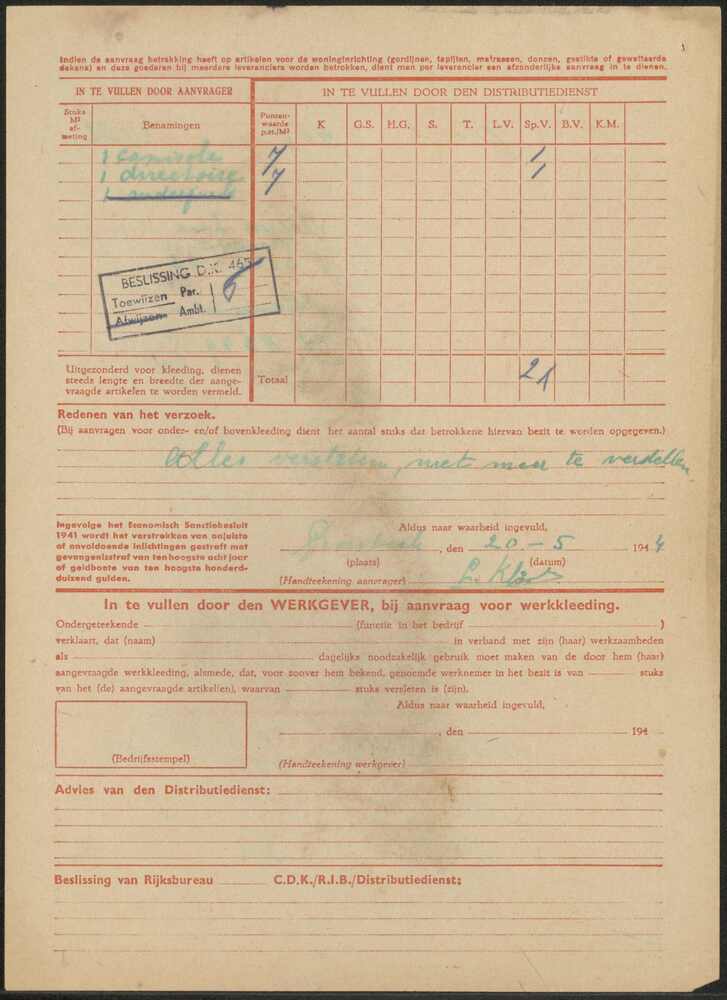 Indien de aanvraag betrekking heeft op artikelen voor de woninginrichting (gordijnen, tapijten, matrassen, donzen, gestikte of gewatteerde
dekens) en deze goederen bij meerdere leveranciers worden betrokken, dient men per leverancier een afzonderlijke aanvraag in te dienen.
IN TE VULLEN DOOR AANVRAGER
IN TE VULLEN DOOR DEN DISTRIBUTIEDIENST
Stuks M² af- meting
Benamingen
Punten- waarde p.st./M²
K G.S. H.G. S. T. L.V. Sp.V. B.V. K.M.
1 camisole 7 1
1 directoire 7 1
1 onderjurk
BESLISSING D.K. 465
Toewijzen Par. 6
Afwijzen Ambt.
Uitgezonderd voor kleeding, dienen
steeds lengte en breedte der aange-
vraagde artikelen te worden vermeld.
Totaal 2
Redenen van het verzoek.
(Bij aanvragen voor onder- en/of bovenkleeding dient het aantal stuks dat betrokkene hiervan bezit te worden opgegeven.)
Alles versleten, niet meer te verstellen
Ingevolge het Economisch Sanctiebesluit
1941 wordt het verstrekken van onjuiste
of onvoldoende inlichtingen gestraft met
gevangenisstraf van ten hoogste acht jaar
of geldboete van ten hoogste honderd-
duizend gulden.
Aldus naar waarheid ingevuld,
, den 20-5 1944
(plaats) (datum)
(Handteekening aanvrager)
In te vullen door den WERKGEVER, bij aanvraag voor werkkleeding.
Ondergeteekende (functie in het bedrijf )
verklaart, dat (naam) in verband met zijn (haar) werkzaamheden
als dagelijks noodzakelijk gebruik moet maken van de door hem (haar)
aangevraagde werkkleeding, alsmede, dat, voor zoover hem bekend, genoemde werknemer in het bezit is van stuks
van het (de) aangevraagde artikel(en), waarvan stuks versleten is (zijn).
Aldus naar waarheid ingevuld,
, den 194
(Bedrijfsstempel)
(Handteekening werkgever)
Advies van den Distributiedienst:
Beslissing van Rijksbureau C.D.K./R.I.B./Distributiedienst: